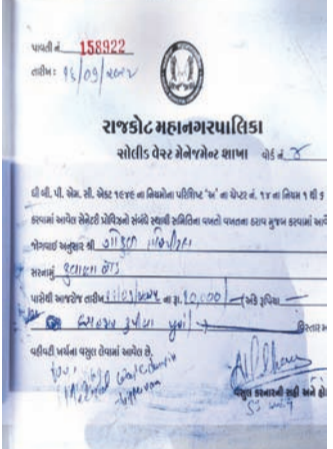 પાવતી નં. 158922
તારીખ : 16/09/2022
રાજકોટ મહાનગરપાલિકા
સોલીડ વેસ્ટ મેનેજમેન્ટ શાખા વોર્ડ નં. ૪
ધી બી. પી. એમ. સી. એક્ટ ૧૯૪૯ ના નિયમોના પરિશિષ્ટ 'અ' ના ચેપ્ટર નં. ૧૪ ના નિયમ ૧ થી ૬
કરવામાં આવેલ સેનેટરી પ્રોવિઝનો સંબંધે સ્થાયી સમિતિના વખતો વખતના ઠરાવ મુજબ કરવામાં આવે
જોગવાઈ અનુસાર શ્રી ગોકુલ હોસ્પીટલ
સરનામું કુવાડવા રોડ
પાસેથી આજરોજ તારીખ ના રૂા. 10,000/- (અંકે રૂપિયા
રૂપીયા પુરા) વિસ્તાર મ
વહીવટી ખર્ચના વસુલ લેવામાં આવેલ છે.
વસુલ કરનારની સહી અને હો